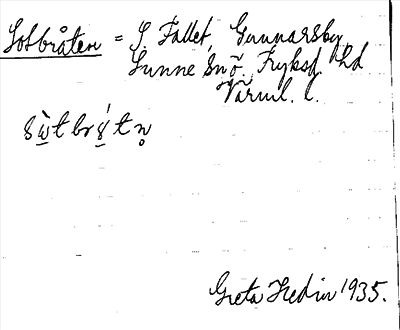 Sotbråten = S. Fallet, Gunnarsby,
Sunne sn ö. Fryksd. hd
Värml. l.
Greta Hedin 1935.